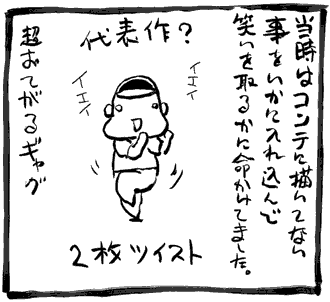 当時はコンテに描いてない
事をいかに入れ込んで
笑いを取るかに命かけてました。
代表作?
イエイ
イエイ
2枚ツイスト
超おてがるギャグ